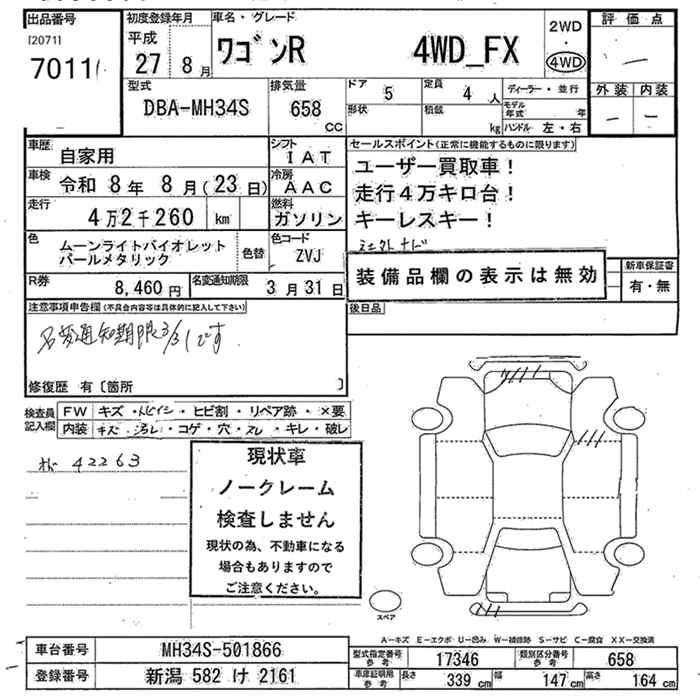 出品番号 初度登録年月 車名・グレード 2WD 評価点
[2071] 平成 ワゴンR 4WD_FX ・ ー
7011 27 8月 4WD
型式 排気量 ドア 5 定員 4人 ディーラー・並行 外装 内装
DBA-MH34S 658 CC 形状 積載 kg モデル年式 年 ー ー
ハンドル 左・右
車歴 自家用 シフト IAT セールスポイント(正常に機能するものに限ります)
車検 令和 8年 8月(23日) 冷房 AAC ユーザー買取車!
走行 4万2千260 km 燃料 ガソリン 走行4万キロ台!
キーレスキー!
色 ムーンライトバイオレット 色替 色コード
パールメタリック ZVJ
装備品欄の表示は無効 新車保証書
R券 8,460円 名変通知期限 3月31日 有・無
注意事項申告欄(不具合内容等は具体的に記入して下さい) 後日品
名変通知期限3/31です.
修復歴 有〔箇所 〕
検査員 FW キズ・トビイシ・ヒビ割・リペア跡・×要
記入欄 内装 キズ・汚レ・コゲ・穴・スレ・キレ・破レ
42263
現状車
ノークレーム
検査しません
現状の為、不動車になる
場合もありますので
ご注意ください。
スペア
A-キズ E-エクボ U-凹み W-補修跡 S-サビ C-腐食 XX-交換済
車台番号 MH34S-501866 型式指定番号 参考 17346 類別区分番号 参考 658
登録番号 新潟 582 け 2161 車庫証明用 参考 長さ 339cm 幅 147cm 高さ 164cm